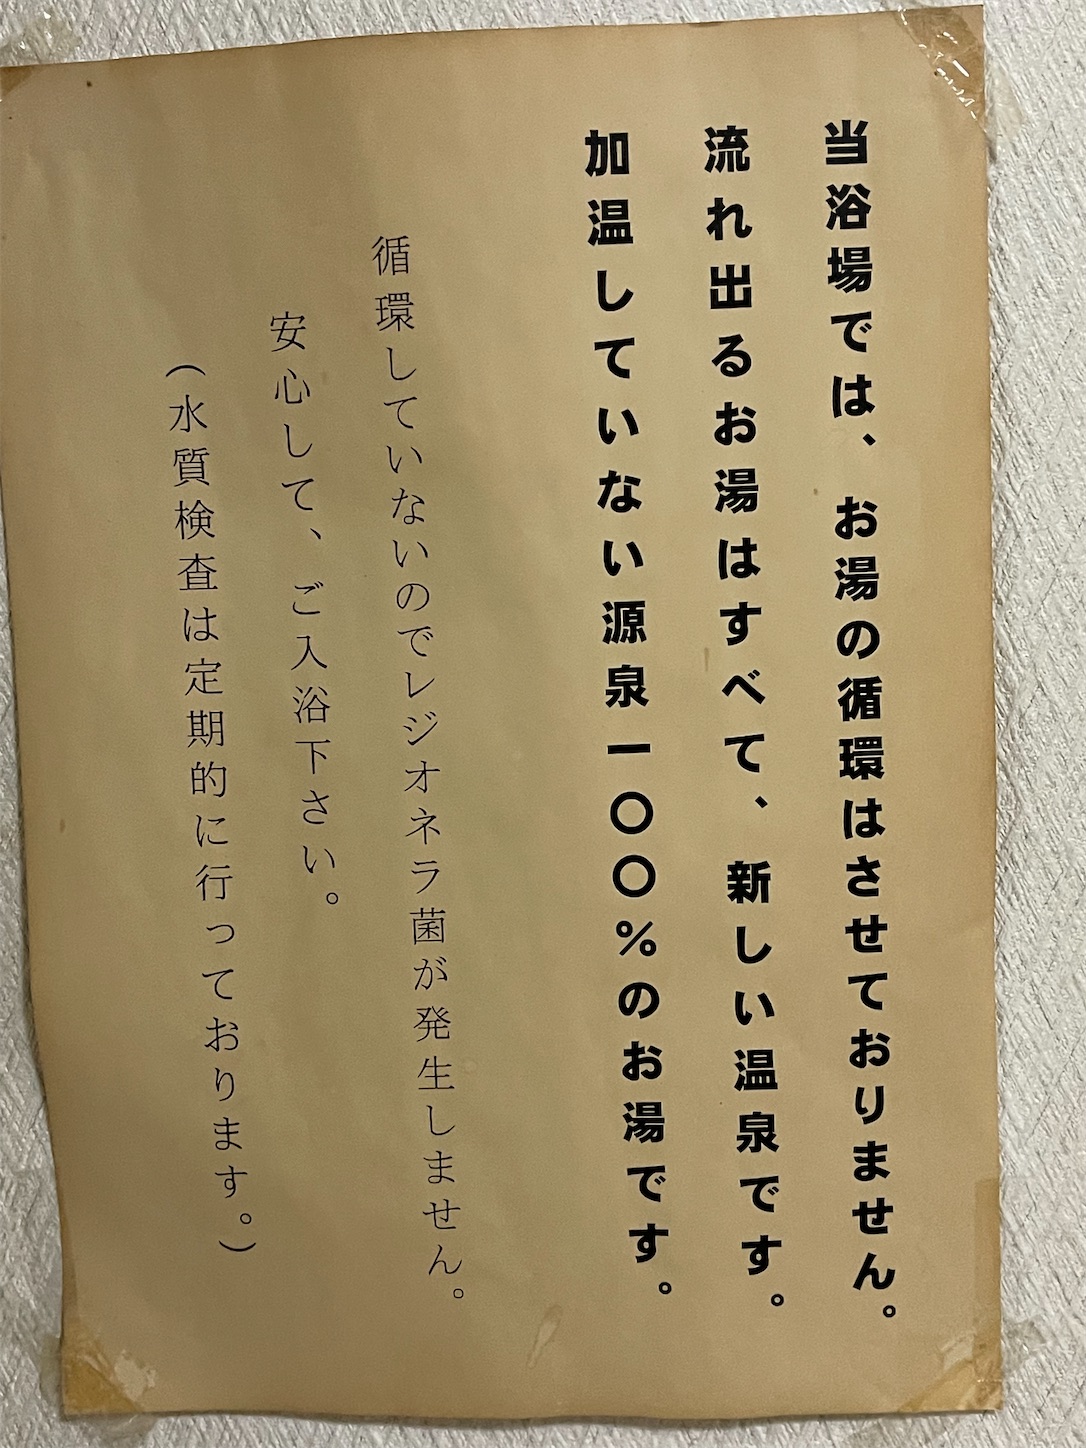 当浴場では、お湯の循環はさせておりません。
流れ出るお湯はすべて、新しい温泉です。
加温していない源泉一〇〇％のお湯です。
循環していないのでレジオネラ菌が発生しません。
安心して、ご入浴下さい。
（水質検査は定期的に行っております。）